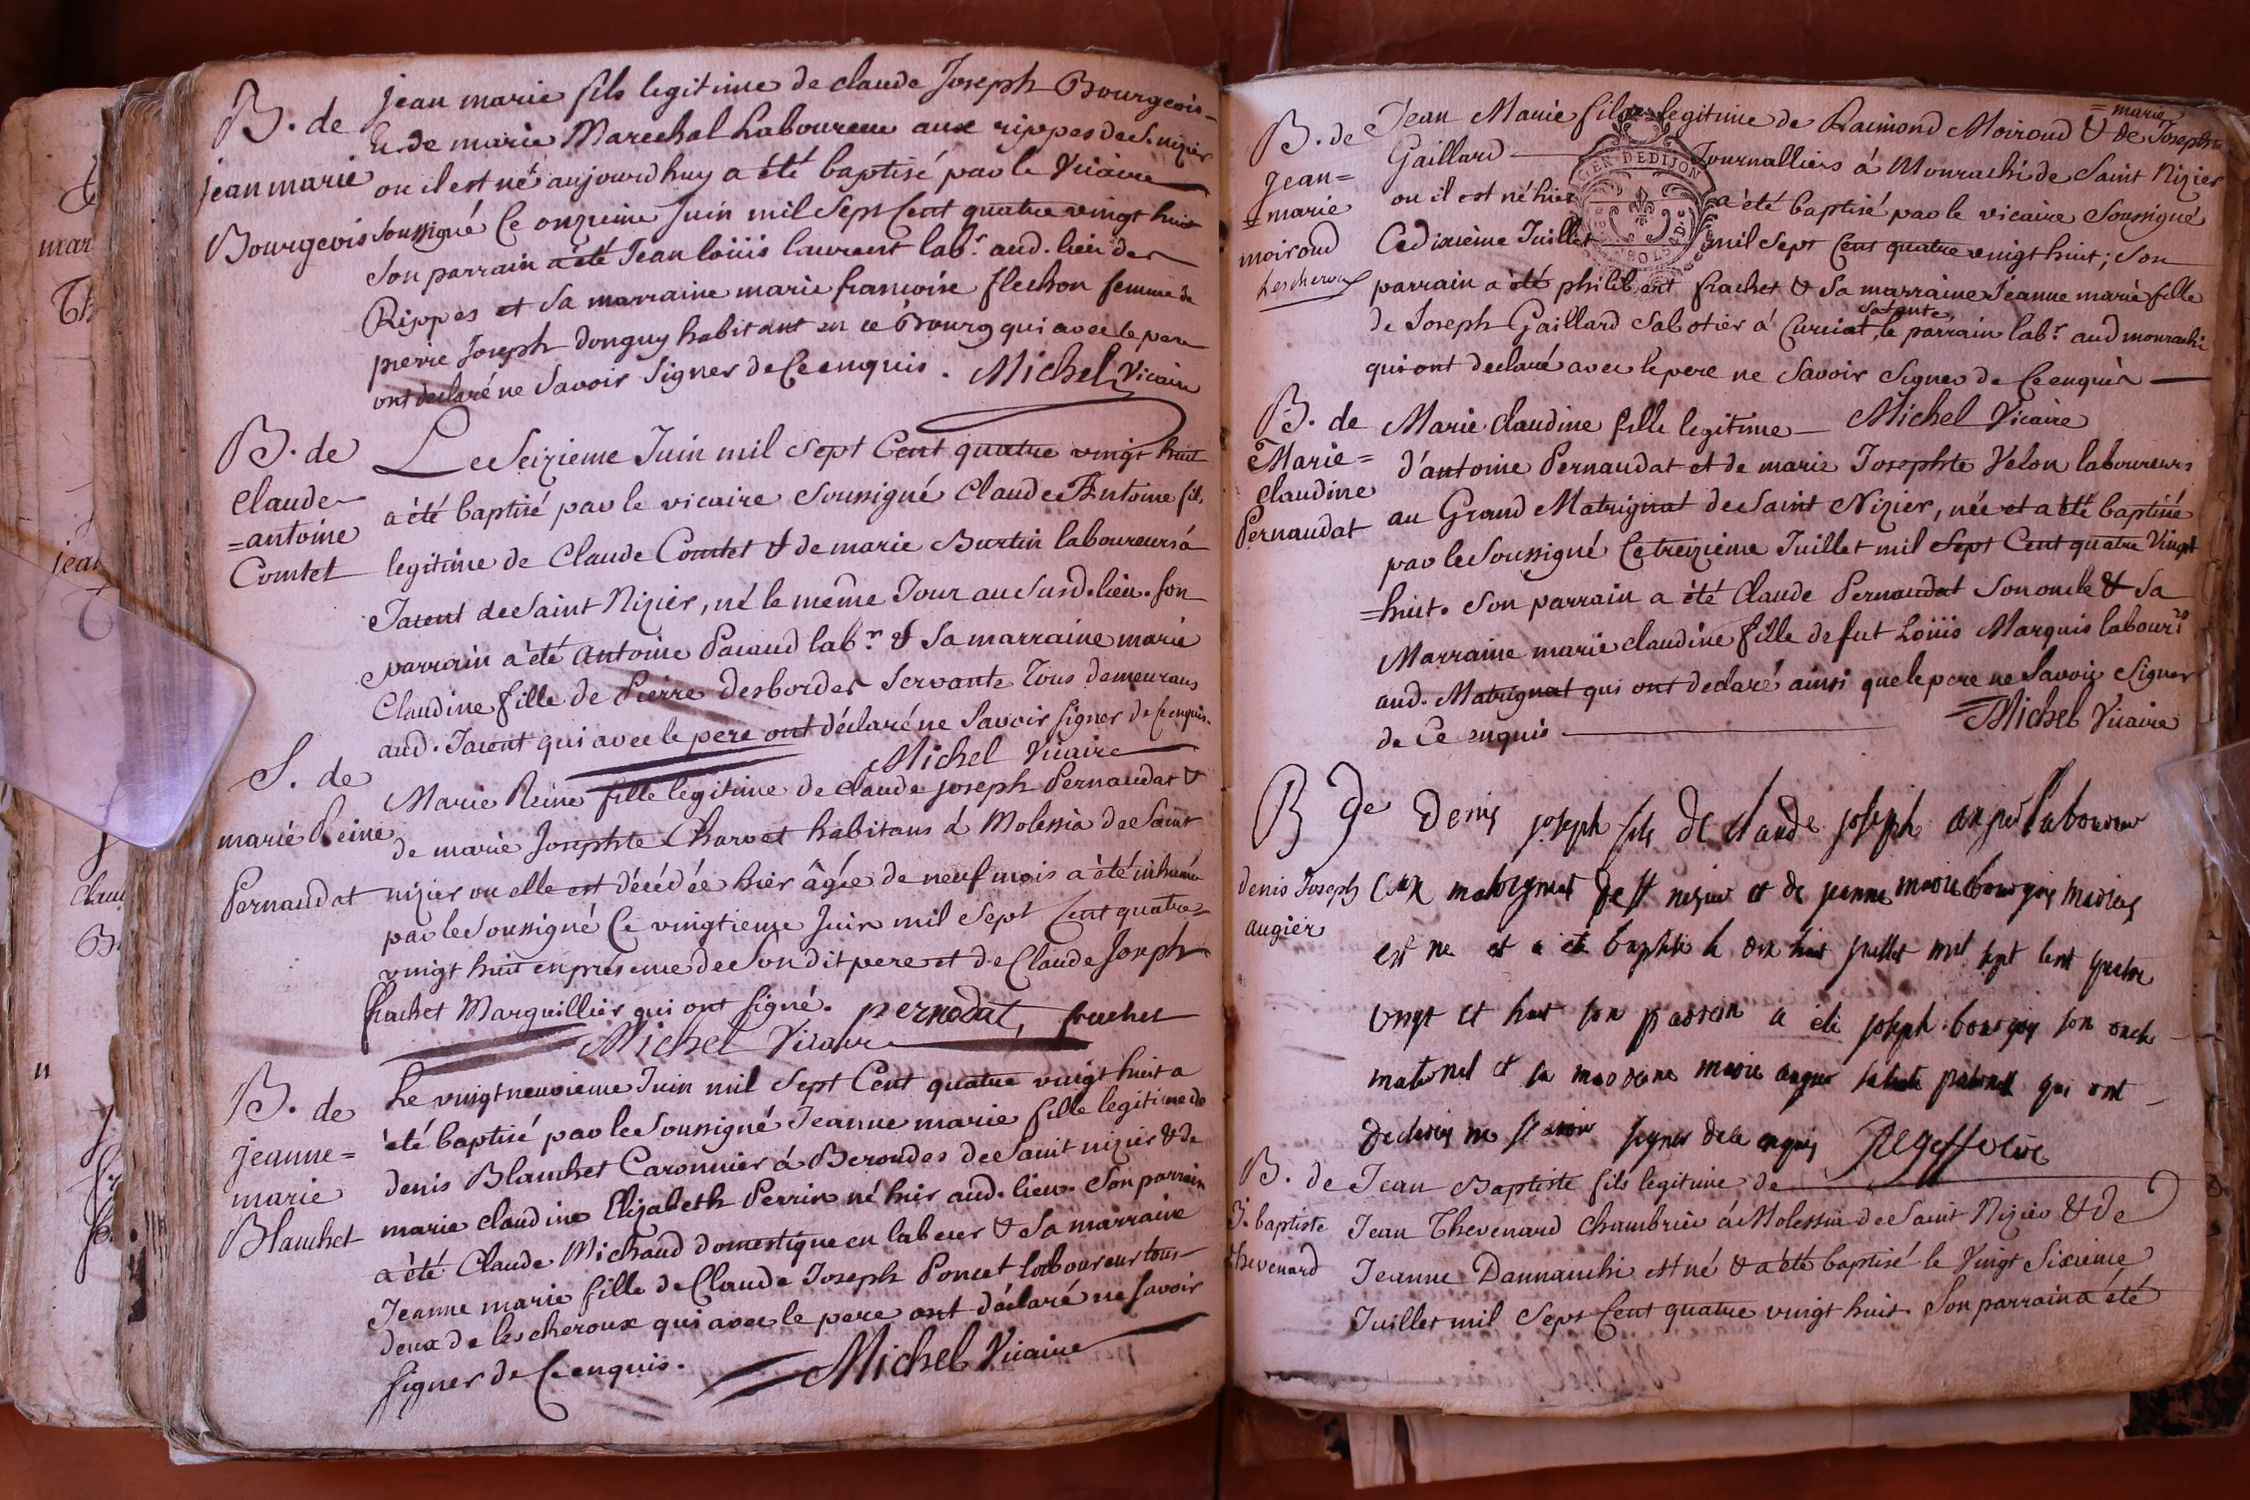 B. de
jean marie
Bourgeois
jean marie fils legitime de claude Joseph Bourgeois
& de marie Marechal Laboureur aux rippes de S. nizier
ou il est né aujourdhuy a été baptisé par le Vicaire
soussigné Ce onzieme Juin mil Sept Cent quatre vingt huit
son parrain a été Jean loüis laurent labr. aud. lieu des
Rippes et sa marraine marie francoise flechon femme de
pierre Joseph donguy habitant en ce Bourg qui avec le pere
ont declaré ne Savoir Signer de Ce enquis. Michel Vicaire
B. de
Claude
=antoine
Comtet
Le Seizieme Juin mil Sept Cent quatre vingt huit
a été baptisé par le vicaire Soussigné Claude Antoine fils
legitime de Claude Comtet & de marie Burtin laboureurs à
Tarent de Saint Nizier, né le même Jour au susd. lieu. son
parrain a été antoine Pacaud labr. & Sa marraine marie
Claudine fille de Pierre desbordes Servante Tous demeurans
aud. Tarent qui avec le pere ont déclaré ne Savoir Signer de Ce enquis.
Michel Vicaire
S. de
marie Reine
Pernaudat
Marie Reine fille legitime de Claude joseph Pernaudat &
de marie Josephte Charvet habitans à Molessia de Saint
nizier ou elle est décédée hier âgée de neuf mois a été inhumée
par le Soussigné Ce vingtieme Juin mil Sept Cent quatre
vingt huit en présence de Son dit pere et de Claude Joseph
frachet Marguillier qui ont Signé. pernodat, frachet
Michel Vicaire
B. de
jeanne=
marie
Blanchet
Le vingt neuvieme Juin mil Sept Cent quatre vingt huit a
été baptisé par le Soussigné Jeanne marie fille legitime de
denis Blanchet Caronnier à Beroudes de Saint nizier & de
marie claudine Elizabeth Perrin né hier aud. lieu. Son parrain
a été Claude Michaud domestique en labeur & Sa marraine
Jeanne marie fille de Claude Joseph Poncet laboureur tous
deux de lescheroux qui avec le pere ont déclaré ne Savoir
Signer de Ce enquis. Michel Vicaire
B. de
Jean=
=marie
moiroud
Lescheroux
Jean Marie fils legitime de Raimond Moiroud & de Josephte =marie
Gaillard Journalliers à Mourachi de Saint Nizier
GEN DE DIJON
ou il est né hier a été baptisé par le vicaire Soussigné
Ce dixieme Juillet mil Sept Cent quatre vingt huit; Son
parrain a été philibert frachet & Sa marraine Jeanne marie fille
de Joseph Gaillard Sabotier à Curciat, Sa tante, le parrain labr. aud mourachi
qui ont declaré avec le pere ne Savoir Signer de Ce enquis
Michel Vicaire
B. de
Marie=
Claudine
Pernaudat
Marie Claudine fille legitime
d'antoine Pernaudat et de marie Josephte Velon laboureurs
au Grand Matrignat de Saint Nizier, née et a été baptisée
par le Soussigné Ce treizieme Juillet mil Sept Cent quatre Vingt
=huit. Son parrain a été Claude Pernaudat Son oncle & Sa
Marraine marie claudine fille de fut Loüis Marquis labourr.
aud. Matrignat qui ont declaré ainsi que le pere ne Savoir Signer
de Ce enquis Michel Vicaire
B de
denis Joseph
augier
Denis joseph fils de claude joseph laboureur
de St nizier et de jeanne marie bourgois mariés
est ne et a ete baptise le dix huit juillet mil sept cent quatre
vingt et huit son parrain a ete joseph bourgois son oncle
maternel et sa marrene marie augier sa tante paternelle qui ont
declarés ne scavoir signer de ce enquis
B. de
J. baptiste
thevenard
Jean Baptiste fils legitime de
Jean Thevenard Chambrier à Molessia de Saint Nizier & de
Jeanne Dannanchi est né & a été baptisé le Vingt Sixieme
Juillet mil Sept Cent quatre vingt huit Son parrain a été